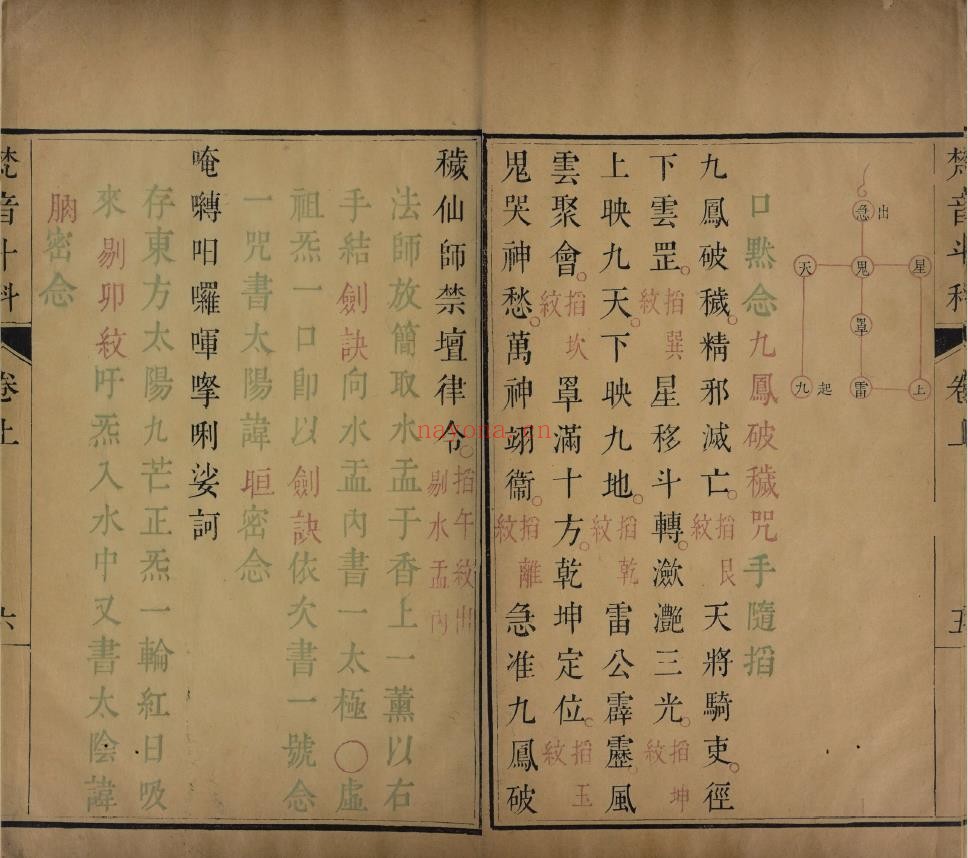 梵音斗科
卷上
五
急 出
天 鬼 星
罩
九 起 雷 上
口默念九鳳破穢咒手隨搯
九鳳破穢。精邪滅亡。搯艮紋 天將騎吏。徑
下雲罡。搯巽紋 星移斗轉。瀲灧三光。搯坤紋
上映九天。下映九地。搯乾紋 雷公霹靂。風
雲聚會。搯坎紋 罩滿十方。乾坤定位。搯玉紋
鬼哭神愁。萬神翊衞。搯離紋 急准九鳳破
穢仙師禁壇律令。搯午紋出剔水盂內
法師放簡取水盂于香上一薰以右
手結劍訣向水盂內書一太極〇虛
祖炁一口即以劍訣依次書一號念
一咒書太陽諱𣆀密念
唵囀呾囉喗㨗唎娑訶
存東方太陽九芒正炁一輪紅日吸
來剔卯紋吁炁入水中又書太陰諱
密念
梵音斗科
卷上
六
nayona.cn